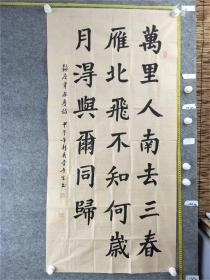 萬里人南去三春
雁北飛不知何歲
月淂與爾同歸